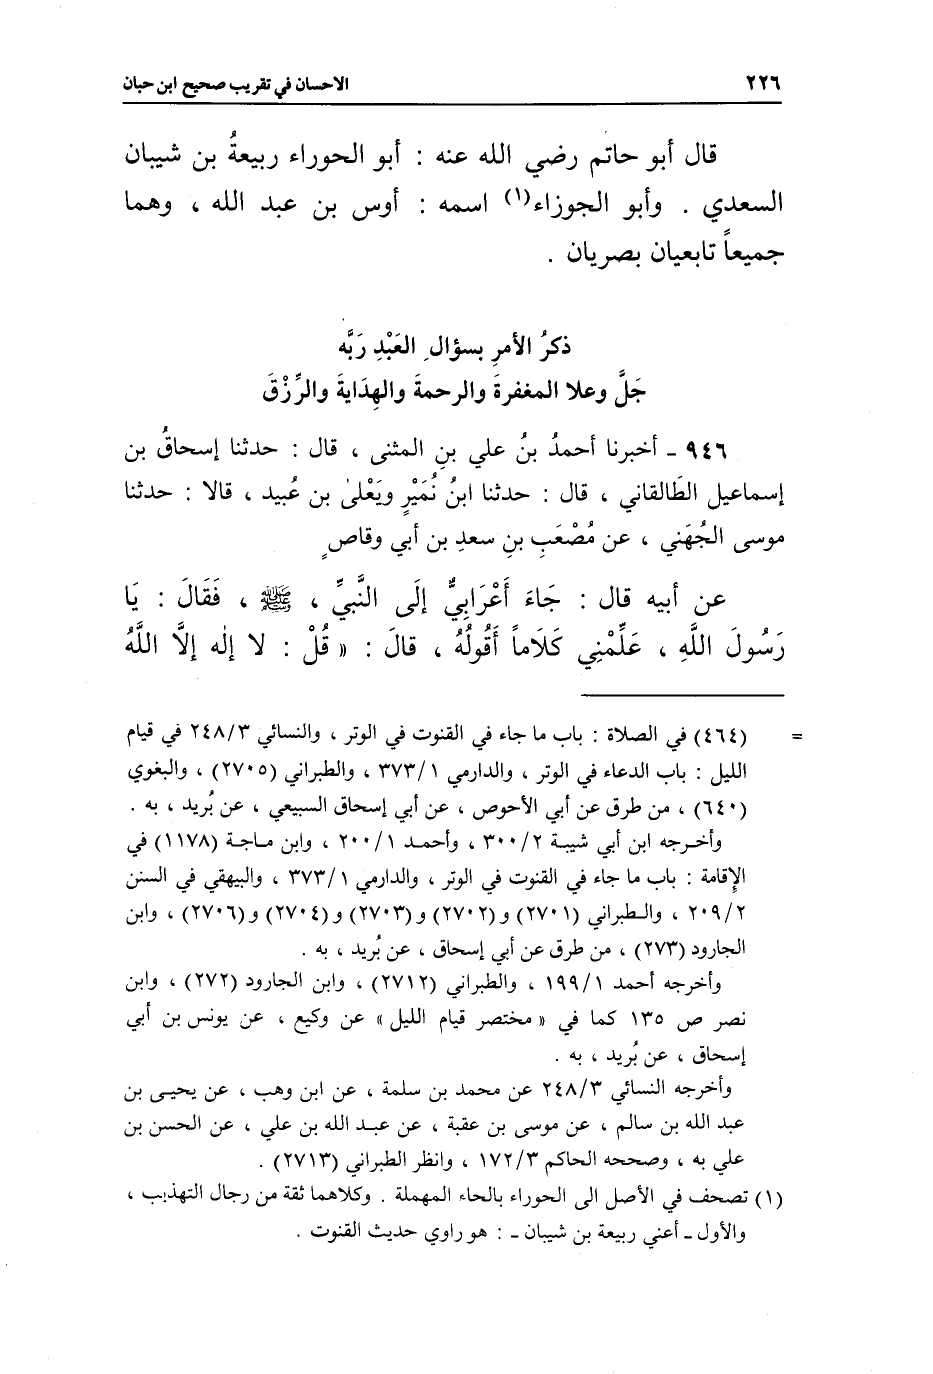 ٢٢٦ الاحسان في تقريب صحيح ابن حبان
قال أبو حاتم رضي الله عنه : أبو الحوراء ربيعةُ بن شيبان
السعدي . وأبو الجوزاء(١) اسمه : أوس بن عبد الله ، وهما
جميعاً تابعيان بصريان .
ذكرُ الأمرِ بسؤالِ العَبْدِ رَبَّه
جَلَّ وعلا المغفرةَ والرحمةَ والهِدَايةَ والرِّزْقَ
٩٤٦ ـ أخبرنا أحمدُ بنُ علي بنِ المثنى ، قال : حدثنا إسحاقُ بن
إسماعيل الطَالقاني ، قال : حدثنا ابنُ نُمَيْرٍ ويَعْلىٰ بن عُبيد ، قالا : حدثنا
موسى الجُهَني ، عن مُصْعَبِ بنِ سعدِ بن أبي وقاصٍ
عن أبيه قال : جَاءَ أَعْرَابِيٌّ إلَى النَّبيِّ ، ﷺ ، فَقَالَ : يَا
رَسُولَ اللَّهِ ، عَلِّمْنِي كَلَاماً أَقُولُهُ ، قالَ : « قُلْ : لا إلٰه إلَّا اللَّهُ
= (٤٦٤) في الصلاة : باب ما جاء في القنوت في الوتر ، والنسائي ٢٤٨/٣ في قيام
الليل : باب الدعاء في الوتر ، والدارمي ٣٧٣/١ ، والطبراني (٢٧٠٥) ، والبغوي
(٦٤٠) ، من طرق عن أبي الأحوص ، عن أبي إسحاق السبيعي ، عن بُريد ، به .
وأخرجه ابن أبي شيبة ٣٠٠/٢ ، وأحمد ٢٠٠/١ ، وابن ماجة (١١٧٨) في
الإقامة : باب ما جاء في القنوت في الوتر ، والدارمي ٣٧٣/١ ، والبيهقي في السنن
٢٠٩/٢ ، والطبراني (٢٧٠١) و(٢٧٠٢) و(٢٧٠٣) و(٢٧٠٤) و(٢٧٠٦) ، وابن
الجارود (٢٧٣) ، من طرق عن أبي إسحاق ، عن بُريد ، به .
وأخرجه أحمد ١٩٩/١ ، والطبراني (٢٧١٢) ، وابن الجارود (٢٧٢) ، وابن
نصر ص ١٣٥ كما في « مختصر قيام الليل » عن وكيع ، عن يونس بن أبي
إسحاق ، عن بُريد ، به .
وأخرجه النسائي ٢٤٨/٣ عن محمد بن سلمة ، عن ابن وهب ، عن يحيى بن
عبد الله بن سالم ، عن موسى بن عقبة ، عن عبد الله بن علي ، عن الحسن بن
علي به ، وصححه الحاكم ١٧٢/٣ ، وانظر الطبراني (٢٧١٣) .
(١) تصحف في الأصل الى الحوراء بالحاء المهملة . وكلاهما ثقة من رجال التهذيب ،
والأول ـ أعني ربيعة بن شيبان ـ : هو راوي حديث القنوت .